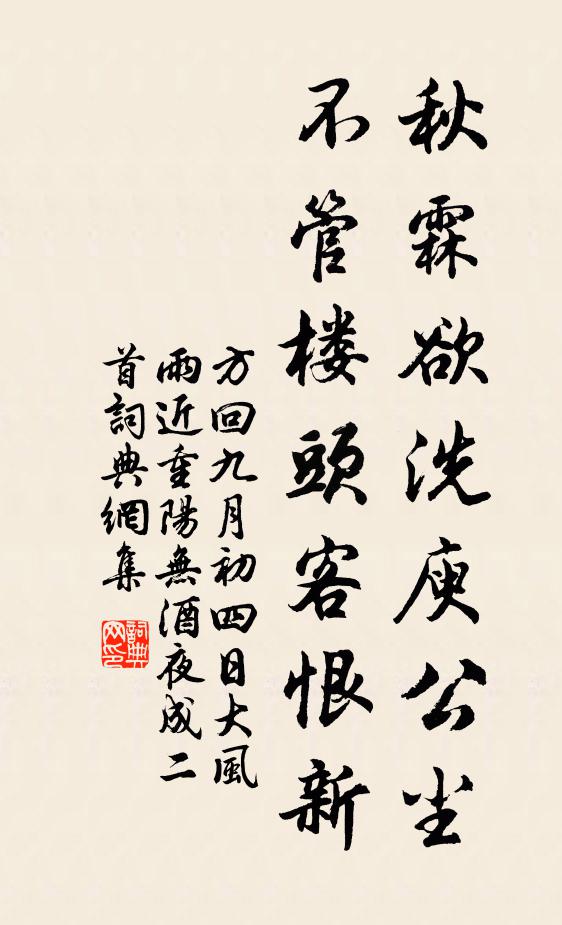 秋霖欲洗庾公尘
不管楼頭客恨新
方回九月初四日大風
雨近重陽無酒夜成二
首詞典網集
詞典网印